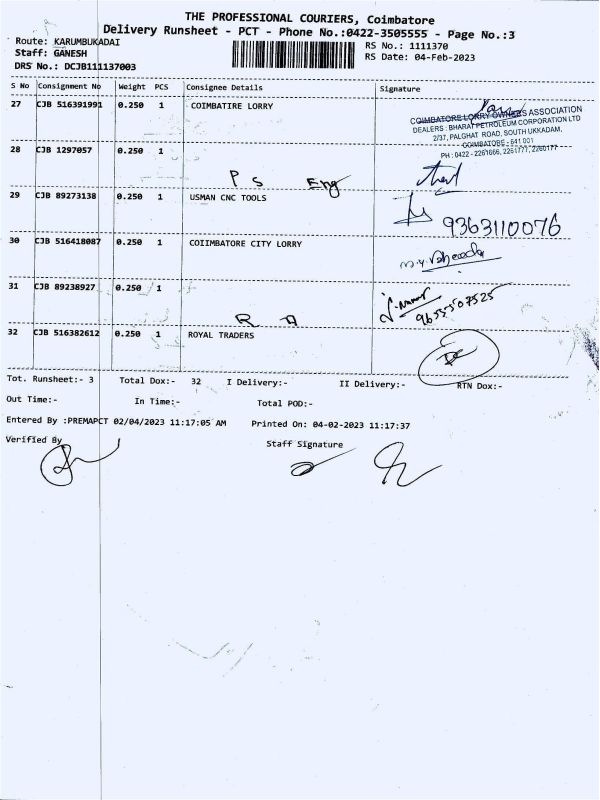 THE PROFESSIONAL COURIERS, Coimbatore
Delivery Runsheet - PCT - Phone No.:0422-3505555 - Page No.:3
Route: KARUMBUKADAI
Staff: GANESH
DRS No.: DCJB111137003
RS No.: 1111370
RS Date: 04-Feb-2023
S No Consignment No Weight PCS Consignee Details Signature
27 CJB 516391991 0.250 1 COIMBATIRE LORRY
COIMBATORE LORRY OWNERS ASSOCIATION
DEALERS : BHARAT PETROLEUM CORPORATION LTD
2/37, PALGHAT ROAD, SOUTH UKKADAM,
COIMBATORE - 641 001
PH : 0422 - 2261666, 2261777, 2260177
28 CJB 1297057 0.250 1
P S Eng
29 CJB 89273138 0.250 1 USMAN CNC TOOLS
9363110076
30 CJB 516418087 0.250 1 COIIMBATORE CITY LORRY
31 CJB 89238927 0.250 1
R A
9655507525
32 CJB 516382612 0.250 1 ROYAL TRADERS
Tot. Runsheet:- 3 Total Dox:- 32 I Delivery:- II Delivery:- RTN Dox:-
Out Time:- In Time:- Total POD:-
Entered By :PREMAPCT 02/04/2023 11:17:05 AM Printed On: 04-02-2023 11:17:37
Verified By Staff Signature